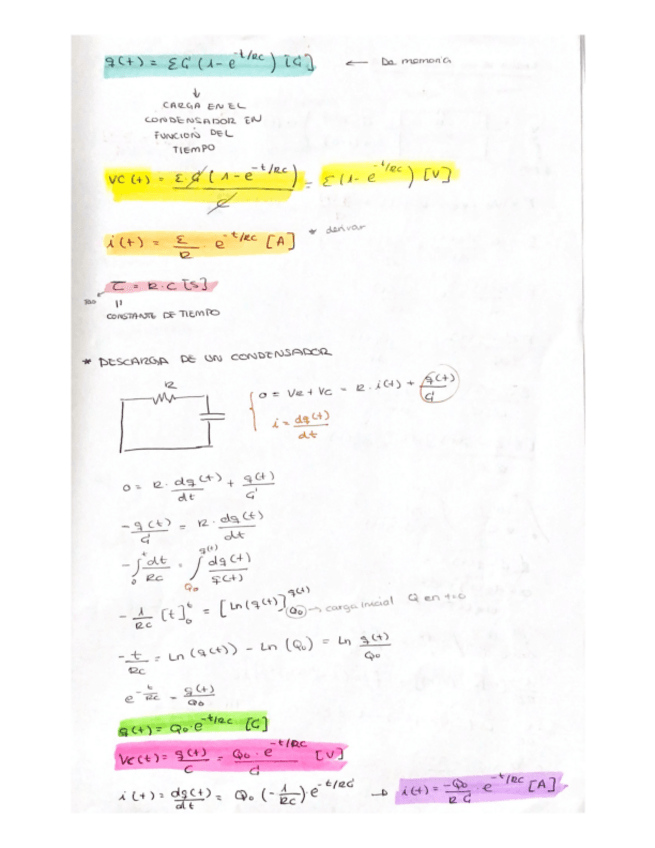 q(t) = εC (1 - e^-t/RC) [C] ← De memoria
↓
CARGA EN EL
CONDENSADOR EN
FUNCIÓN DEL
TIEMPO
VC(t) = ε·C (1 - e^-t/RC) / C = ε(1 - e^-t/RC) [V]
i(t) = ε/R · e^-t/RC [A] * derivar
τ = R·C [S]
tao
"
CONSTANTE DE TIEMPO
* DESCARGA DE UN CONDENSADOR
R
0 = VR + VC = R · i(t) + q(t)/C
i = dq(t)/dt
0 = R · dq(t)/dt + q(t)/C
-q(t)/C = R · dq(t)/dt
-∫₀^t dt/RC = ∫_Q₀^q(t) dq(t)/q(t)
-1/RC [t]₀^t = [Ln(q(t)]_Q₀^q(t) → carga inicial Q en t=0
-t/RC = Ln(q(t)) - Ln(Q₀) = Ln q(t)/Q₀
e^-t/RC = q(t)/Q₀
q(t) = Q₀·e^-t/RC [C]
VC(t) = q(t)/C = Q₀·e^-t/RC / C [V]
i(t) = dq(t)/dt = Q₀ (-1/RC)·e^-t/RC → i(t) = -Q₀/RC · e^-t/RC [A]